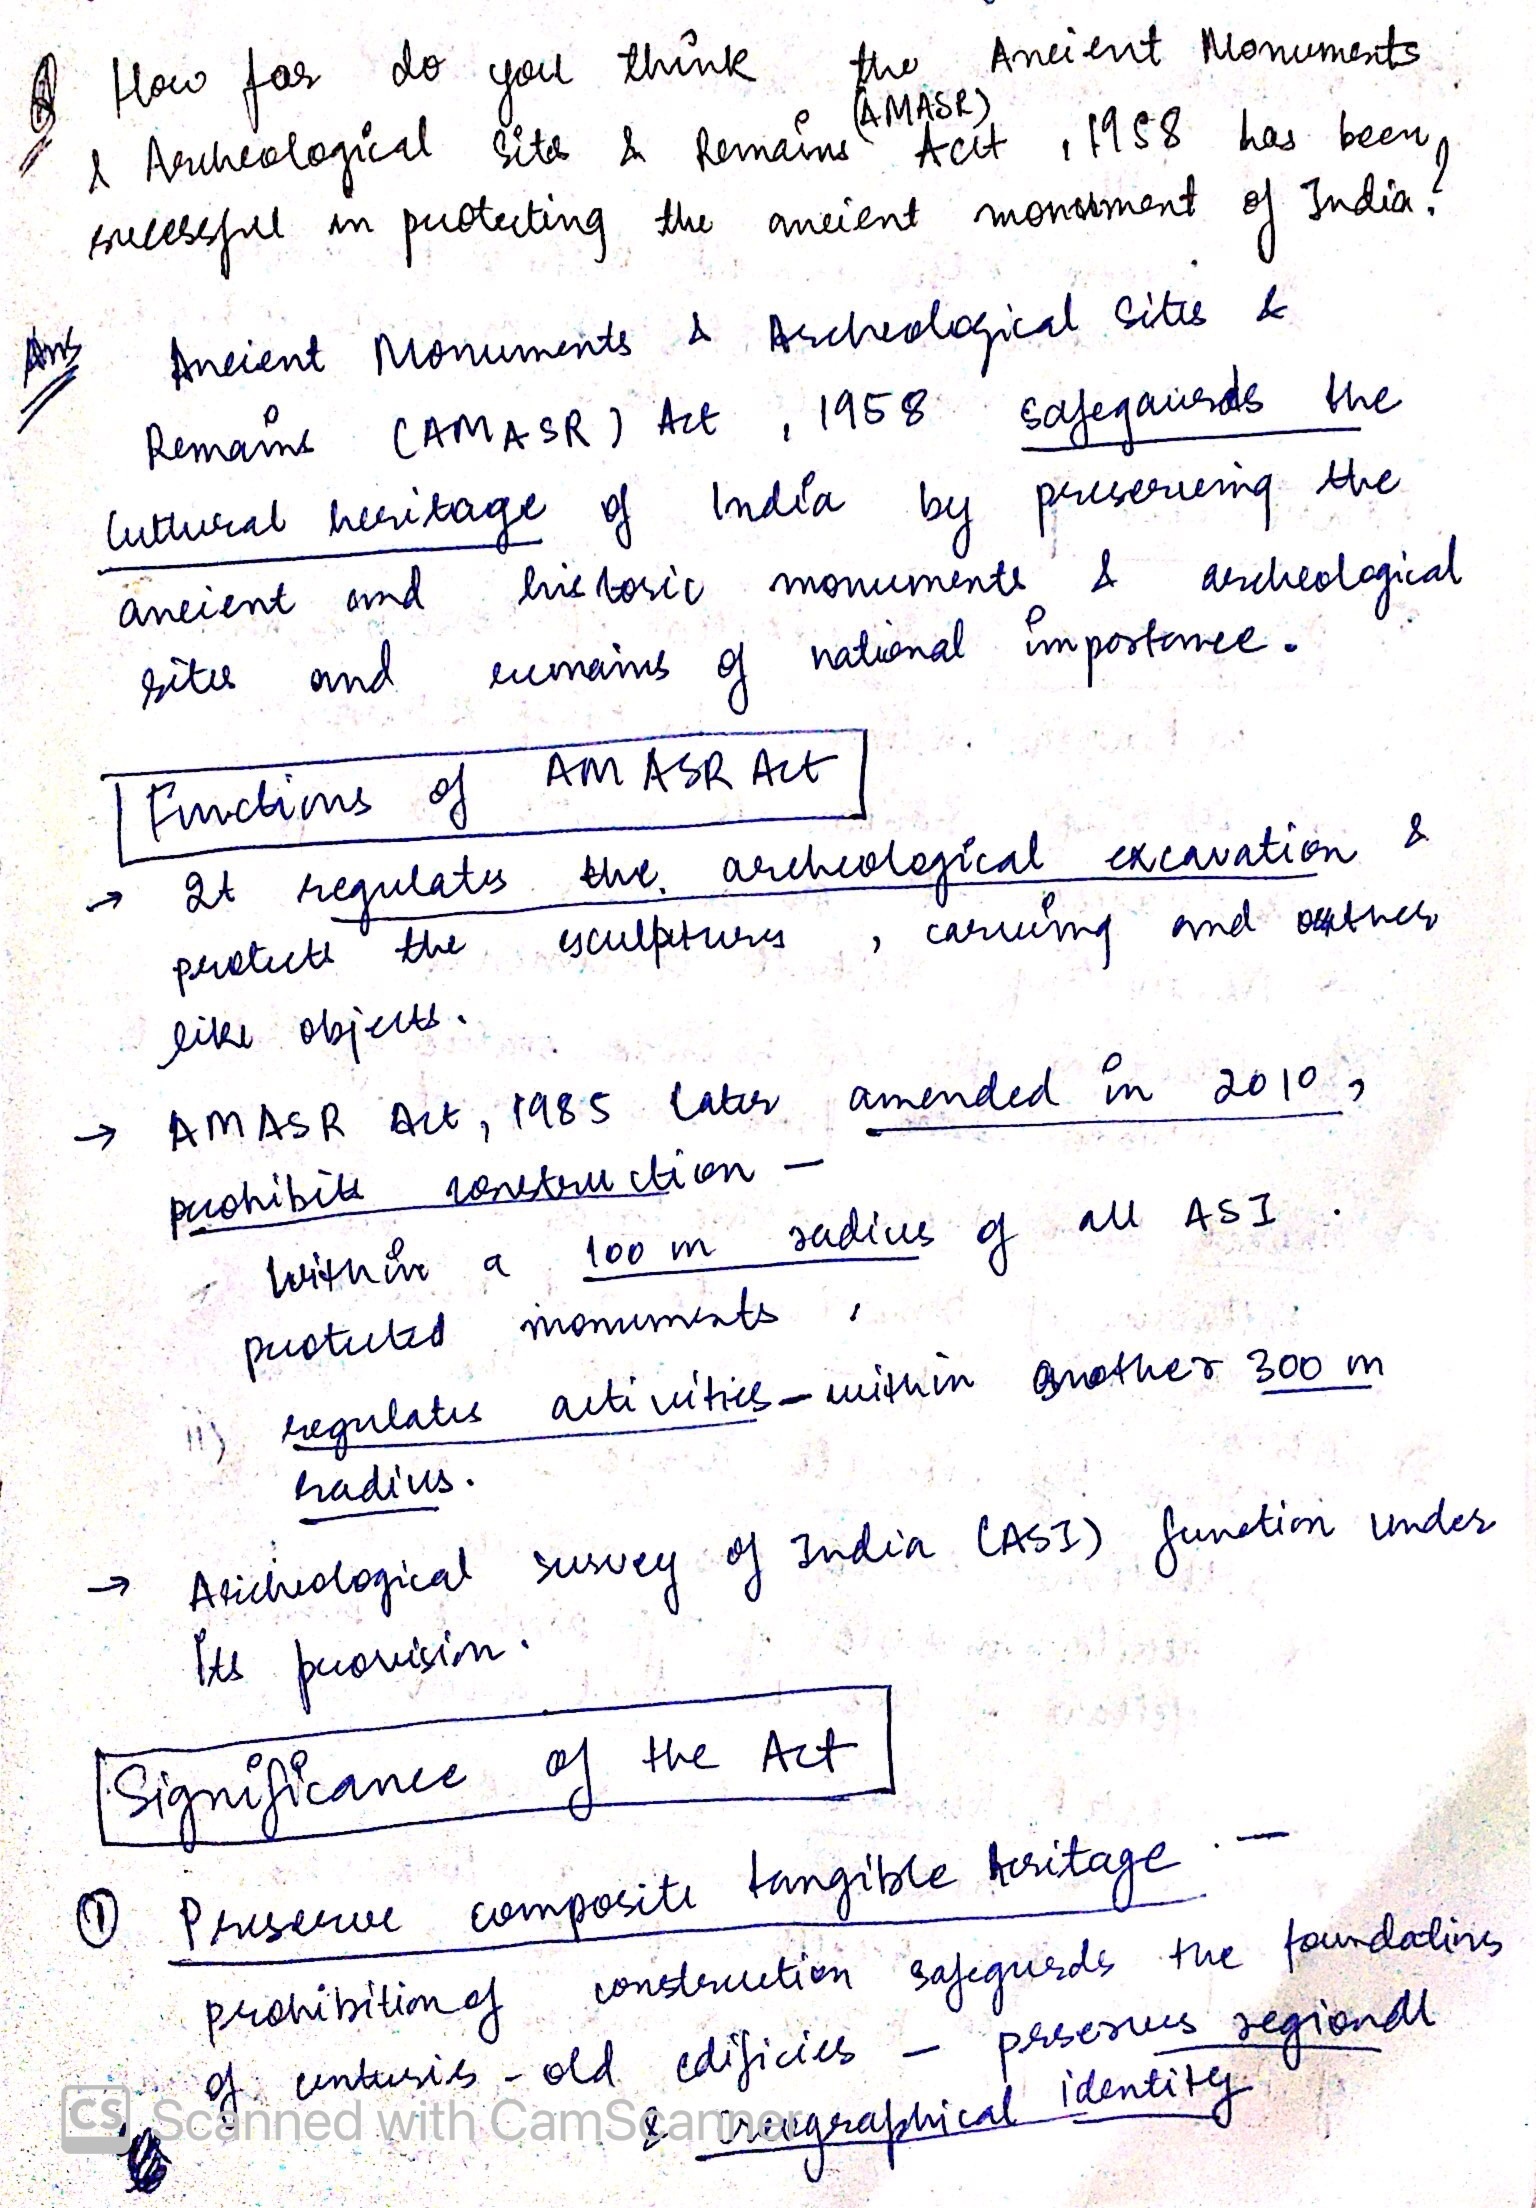 Q How far do you think the Ancient Monuments
& Archeological Sites & Remains (AMASR) Act, 1958 has been
successful in protecting the ancient monument of India?
Ans Ancient Monuments & Archeological Sites &
Remains (AMASR) Act, 1958 safegaurds the
Cultural heritage of India by preserving the
ancient and historic monuments & archeological
sites and remains of national importance.
Functions of AMASR Act
→ It regulates the archeological excavation &
protects the sculptures, carving and other
like objects.
→ AMASR Act, 1985 later amended in 2010,
prohibits construction –
Within a 100 m radius of all ASI
protected monuments,
ii) regulates activities – within another 300 m
radius.
→ Archeological survey of India (ASI) function under
its provision.
Significance of the Act
① Preserve composite tangible heritage –
prohibition of construction safeguards the foundations
of centuries-old edificies – preserves regional
& Geographical identity
CS Scanned with CamScanner